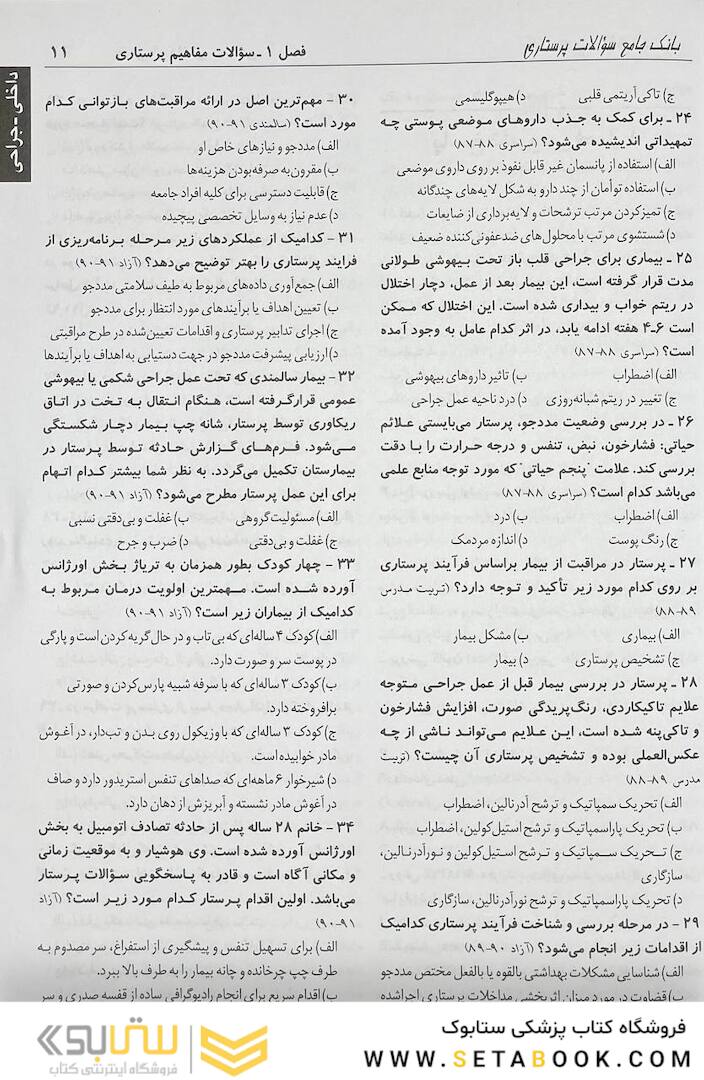 بانک جامع سؤالات پرستاری
فصل ۱ ـ سؤالات مفاهیم پرستاری
۱۱
داخلی-جراحی
ج) تاکی‌آریتمی قلبی د) هیپوگلیسمی
۲۴ ـ برای کمک به جذب داروهای موضعی پوستی چه
تمهیداتی اندیشیده می‌شود؟ (سراسری ۸۸-۸۷)
الف) استفاده از پانسمان غیر قابل نفوذ بر روی داروی موضعی
ب) استفاده توأمان از چند دارو به شکل لایه‌های چندگانه
ج) تمیزکردن مرتب ترشحات و لایه‌برداری از ضایعات
د) شستشوی مرتب با محلول‌های ضدعفونی‌کننده ضعیف
۲۵ ـ بیماری برای جراحی قلب باز تحت بیهوشی طولانی
مدت قرار گرفته است، این بیمار بعد از عمل، دچار اختلال
در ریتم خواب و بیداری شده است. این اختلال که ممکن
است ۶-۴ هفته ادامه یابد، در اثر کدام عامل به وجود آمده
است؟ (سراسری ۸۸-۸۷)
الف) اضطراب ب) تاثیر داروهای بیهوشی
ج) تغییر در ریتم شبانه‌روزی د) درد ناحیه عمل جراحی
۲۶ ـ در بررسی وضعیت مددجو، پرستار می‌بایستی علائم
حیاتی: فشارخون، نبض، تنفس و درجه حرارت را با دقت
بررسی کند. علامت "پنجم حیاتی" که مورد توجه منابع علمی
می‌باشد کدام است؟ (سراسری ۸۸-۸۷)
الف) اضطراب ب) درد
ج) رنگ پوست د) اندازه مردمک
۲۷ ـ پرستار در مراقبت از بیمار براساس فرآیند پرستاری
بر روی کدام مورد زیر تأکید و توجه دارد؟ (تربیت مدرس
۸۹-۸۸)
الف) بیماری ب) مشکل بیمار
ج) تشخیص پرستاری د) بیمار
۲۸ ـ پرستار در بررسی بیمار قبل از عمل جراحی متوجه
علایم تاکیکاردی، رنگ‌پریدگی صورت، افزایش فشارخون
و تاکی‌پنه شده است، این علایم می‌تواند ناشی از چه
عکس‌العملی بوده و تشخیص پرستاری آن چیست؟ (تربیت
مدرس ۸۹-۸۸)
الف) تحریک سمپاتیک و ترشح آدرنالین، اضطراب
ب) تحریک پاراسمپاتیک و ترشح استیل‌کولین، اضطراب
ج) تحریک سمپاتیک و ترشح استیل‌کولین و نورآدرنالین،
سازگاری
د) تحریک پاراسمپاتیک و ترشح نورآدرنالین، سازگاری
۲۹ ـ در مرحله بررسی و شناخت فرآیند پرستاری کدامیک
از اقدامات زیر انجام می‌شود؟ (آزاد ۹۰-۸۹)
الف) شناسایی مشکلات بهداشتی بالقوه یا بالفعل مختص مددجو
ب) قضاوت در مورد میزان اثربخشی مداخلات پرستاری اجراشده
۳۰ - مهم‌ترین اصل در ارائه مراقبت‌های بازتوانی کدام
مورد است؟ (سالمندی ۹۱-۹۰)
الف) مددجو و نیازهای خاص او
ب) مقرون‌به صرفه‌بودن هزینه‌ها
ج) قابلیت دسترسی برای کلیه افراد جامعه
د) عدم نیاز به وسایل تخصصی پیچیده
۳۱ - کدامیک از عملکردهای زیر مرحله برنامه‌ریزی از
فرایند پرستاری را بهتر توضیح می‌دهد؟ (آزاد ۹۱-۹۰)
الف) جمع‌آوری داده‌های مربوط به طیف سلامتی مددجو
ب) تعیین اهداف یا برآیندهای مورد انتظار برای مددجو
ج) اجرای تدابیر پرستاری و اقدامات تعیین‌شده در طرح مراقبتی
د) ارزیابی پیشرفت مددجو در جهت دستیابی به اهداف یا برآیندها
۳۲ - بیمار سالمندی که تحت عمل جراحی شکمی با بیهوشی
عمومی قرارگرفته است، هنگام انتقال به تخت در اتاق
ریکاوری توسط پرستار، شانه چپ بیمار دچار شکستگی
می‌شود. فرم‌های گزارش حادثه توسط پرستار در
بیمارستان تکمیل می‌گردد. به نظر شما بیشتر کدام اتهام
برای این عمل پرستار مطرح می‌شود؟ (آزاد ۹۱-۹۰)
الف) مسئولیت گروهی ب) غفلت و بی‌دقتی نسبی
ج) غفلت و بی‌دقتی د) ضرب و جرح
۳۳ - چهار کودک بطور همزمان به تریاژ بخش اورژانس
آورده شده است. مهمترین اولویت درمان مربوط به
کدامیک از بیماران زیر است؟ (آزاد ۹۱-۹۰)
الف) کودک ۴ ساله‌ای که بی‌تاب و در حال گریه کردن است و پارگی
در پوست سر و صورت دارد.
ب) کودک ۳ ساله‌ای که با سرفه شبیه پارس‌کردن و صورتی
برافروخته دارد.
ج) کودک ۳ ساله‌ای که با وزیکول روی بدن و تب‌دار، در آغوش
مادر خوابیده است.
د) شیرخوار ۶ ماهه‌ای که صداهای تنفس استریدور دارد و صاف
در آغوش مادر نشسته و آبریزش از دهان دارد.
۳۴ - خانم ۲۸ ساله پس از حادثه تصادف اتومبیل به بخش
اورژانس آورده شده است. وی هوشیار و به موقعیت زمانی
و مکانی آگاه است و قادر به پاسخگویی سؤالات پرستار
می‌باشد. اولین اقدام پرستار کدام مورد زیر است؟ (آزاد
۹۱-۹۰)
الف) برای تسهیل تنفس و پیشگیری از استفراغ، سر مصدوم به
طرف چپ چرخانده و چانه بیمار را به طرف بالا ببرد.
ب) اقدام سریع برای انجام رادیوگرافی ساده از قفسه صدری و سر
فروشگاه کتاب پزشکی ستابوک
WWW.SETABOOK.COM
ستابوک
فروشگاه اینترنتی کتاب